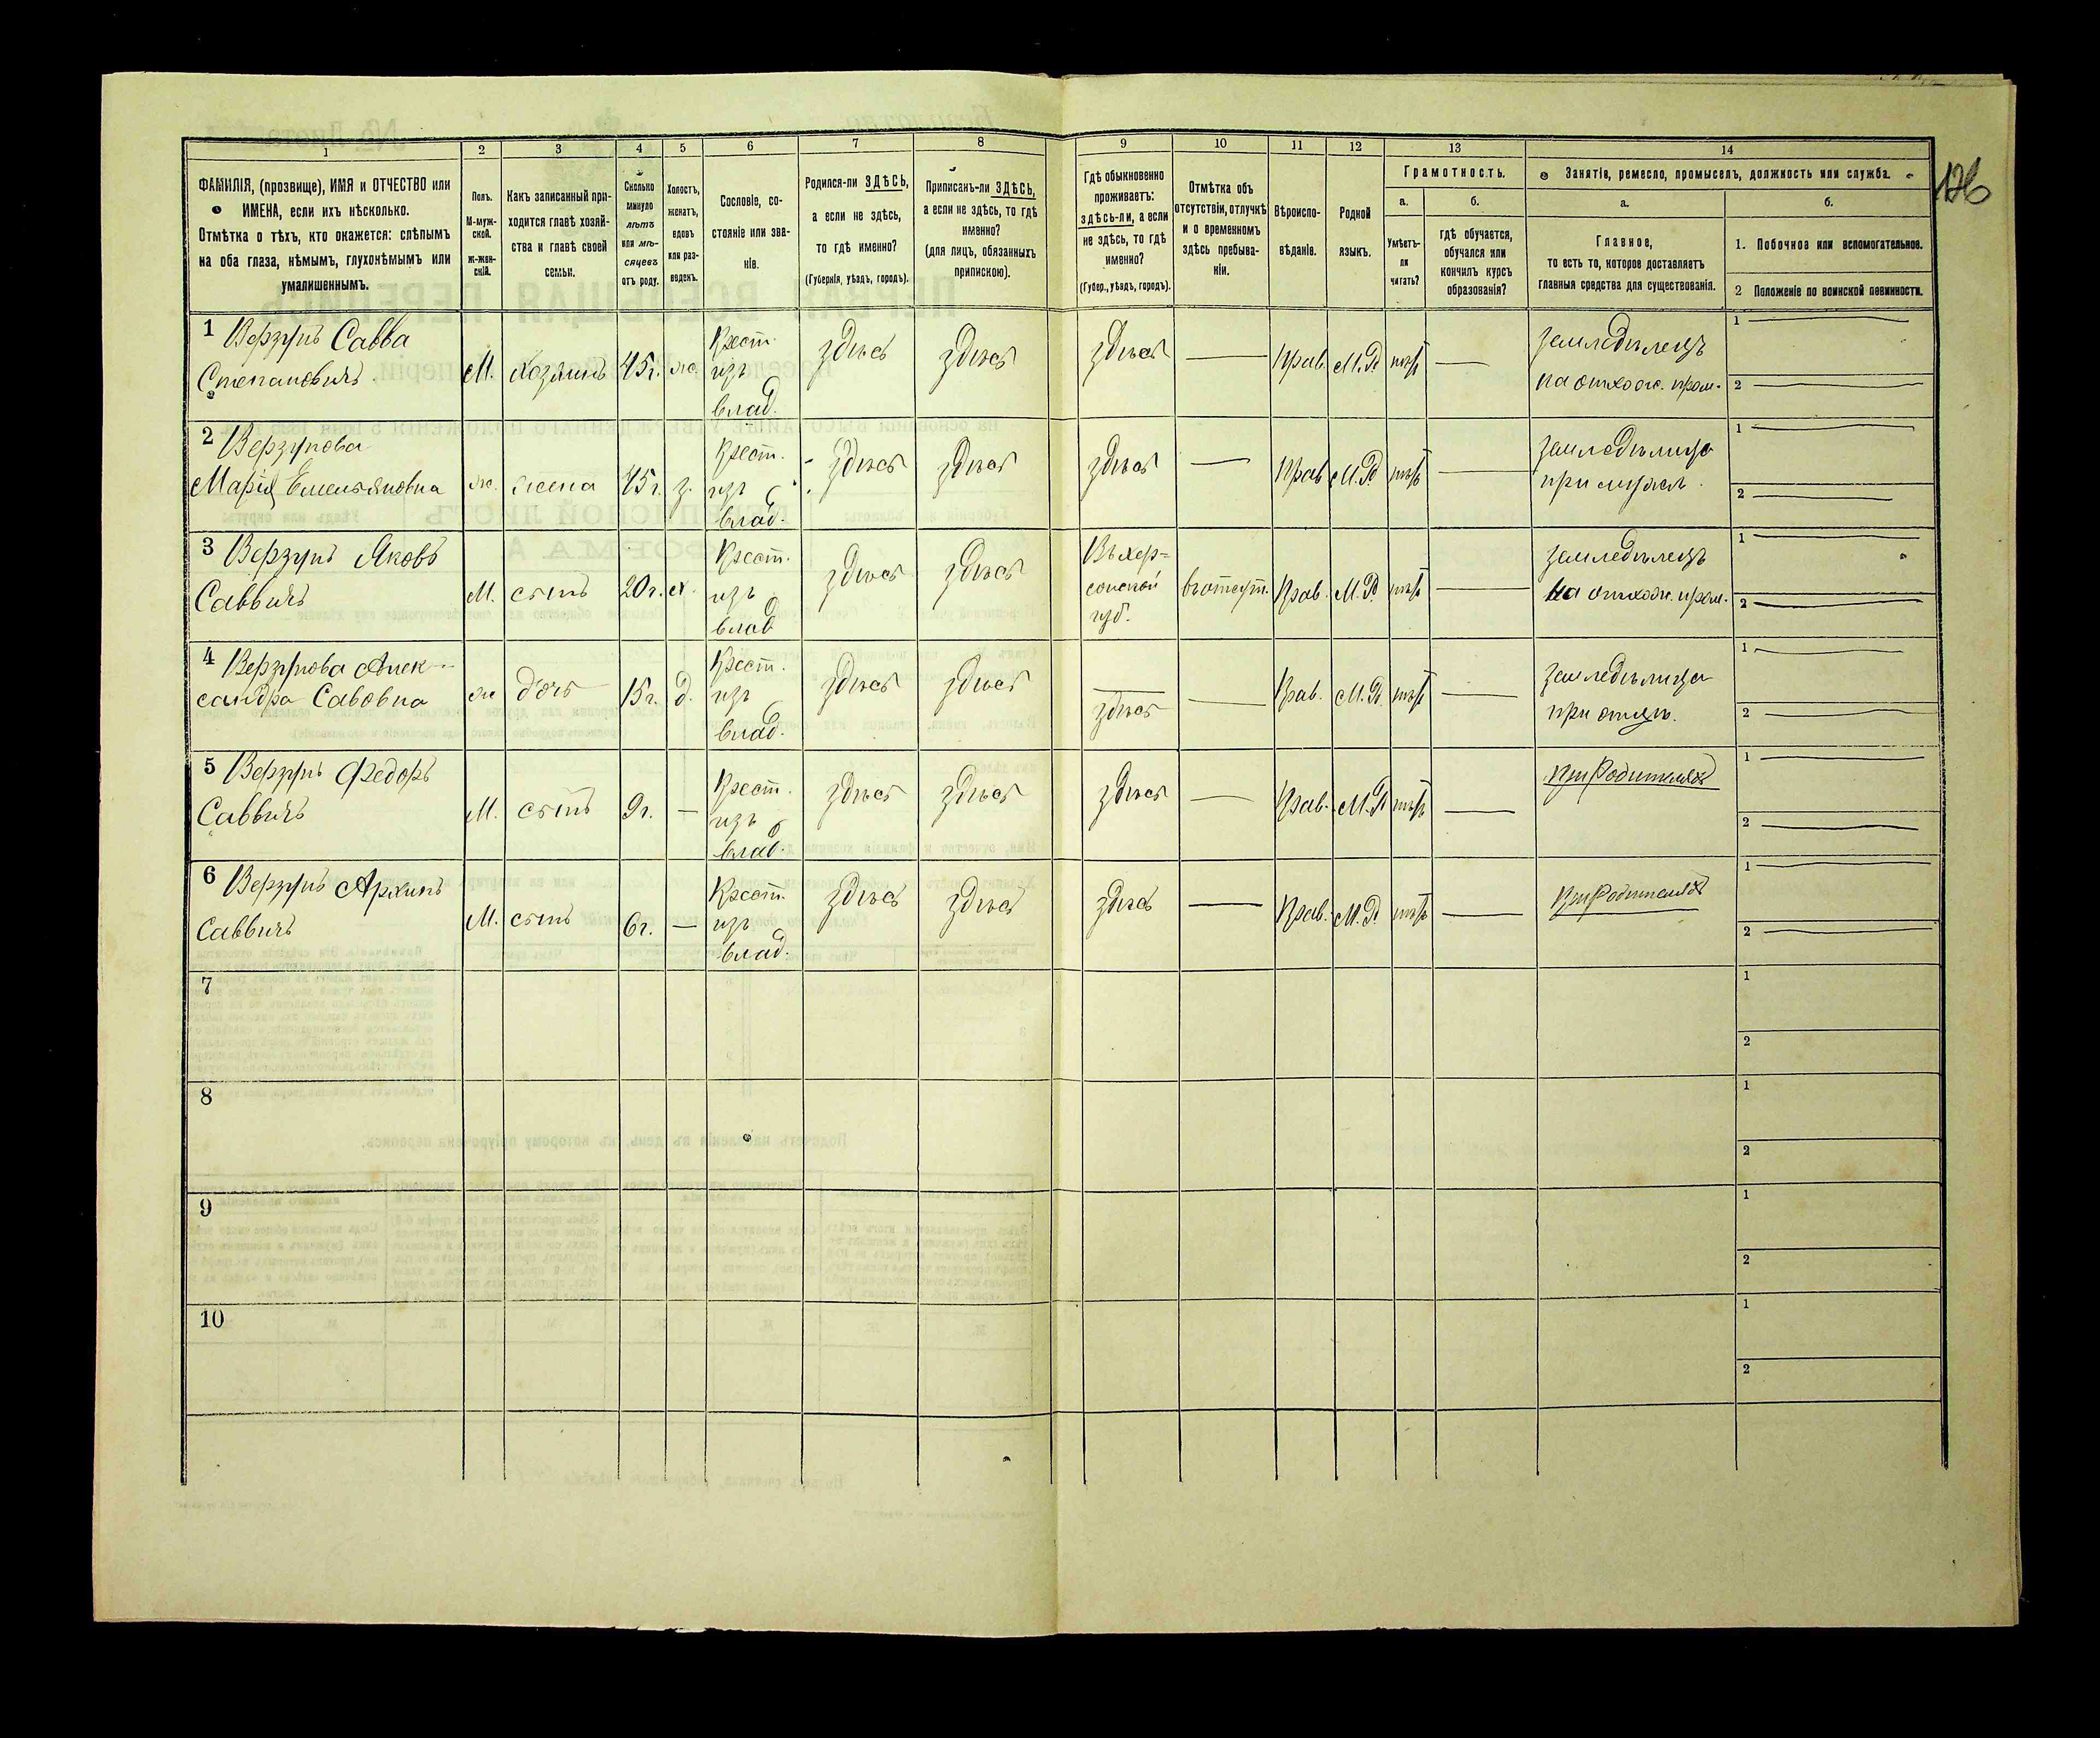 126
1
2
3
4
5
6
7
8
9
10
11
12
13
14
ФАМИЛІЯ, (прозвище), ИМЯ и ОТЧЕСТВО или
ИМЕНА, если ихъ нѣсколько.
Отмѣтка о тѣхъ, кто окажется: слѣпымъ
на оба глаза, нѣмымъ, глухонѣмымъ или
умалишеннымъ.
Полъ.
М-муж-
ской.
Ж-жен-
скій.
Какъ записанный при-
ходится главѣ хозяй-
ства и главѣ своей
семьи.
Сколько
минуло
лѣтъ
или мѣ-
сяцевъ
отъ роду.
Холостъ,
женатъ,
вдовъ
или раз-
веденъ.
Сословіе, со-
стояніе или зва-
ніе.
Родился-ли ЗДѢСЬ,
а если не здѣсь,
то гдѣ именно?
(Губернія, уѣздъ, городъ).
Приписанъ-ли ЗДѢСЬ,
а если не здѣсь, то гдѣ
именно?
(для лицъ, обязанныхъ
припискою).
Гдѣ обыкновенно
проживаетъ:
здѣсь-ли, а если
не здѣсь, то гдѣ
именно?
(Губер., уѣздъ, городъ).
Отмѣтка объ
отсутствіи, отлучкѣ
и о временномъ
здѣсь пребыва-
ніи.
Вѣроиспо-
вѣданіе.
Родной
языкъ.
Грамотность.
а.
Умѣетъ-
ли
читать?
б.
гдѣ обучается,
обучался или
кончилъ курсъ
образованія?
Занятіе, ремесло, промыселъ, должность или служба.
а.
Главное,
то есть то, которое доставляетъ
главныя средства для существованія.
б.
1. Побочное или вспомогательное.
2 Положеніе по воинской повинности.
1 Верзунъ Савва
Степановичъ
М. Хозяинъ 45 г. ж. Крест. изъ влад. здѣсь здѣсь здѣсь — Прав. М.Р. нѣтъ —
Земледѣлецъ
на отхож. пром.
1 —
2 —
2 Верзунова
Марія Емельяновна
ж. жена 45 г. з. Крест. изъ влад. здѣсь здѣсь здѣсь — Прав М.Р. нѣтъ —
Земледѣлица
при мужѣ.
1 —
2 —
3 Верзунъ Яковъ
Саввичъ
М. сынъ 20 г. х. Крест. изъ влад здѣсь здѣсь
Въ Хер-
сонской
губ.
въ отсут. Прав. М.Р. нѣтъ —
Земледѣлецъ
на отхож. пром.
1 —
2 —
4 Верзунова Алек-
сандра Савовна
ж дочь 15 г. д. Крест. изъ влад. здѣсь здѣсь здѣсь — Прав. М.Р. нѣтъ —
Земледѣлица
при отцѣ.
1 —
2 —
5 Верзунъ Федоръ
Саввичъ
М. сынъ 9 г. — Крест. изъ влад. здѣсь здѣсь здѣсь — Прав. М.Р. нѣтъ —
При Родителяхъ
1 —
2 —
6 Верзунъ Архипъ
Саввичъ
М. сынъ 6 г. — Крест. изъ влад. здѣсь здѣсь здѣсь — Прав. М.Р. нѣтъ —
При Родителяхъ
1 —
2 —
7
1
2
8
1
2
9
1
2
10
1
2